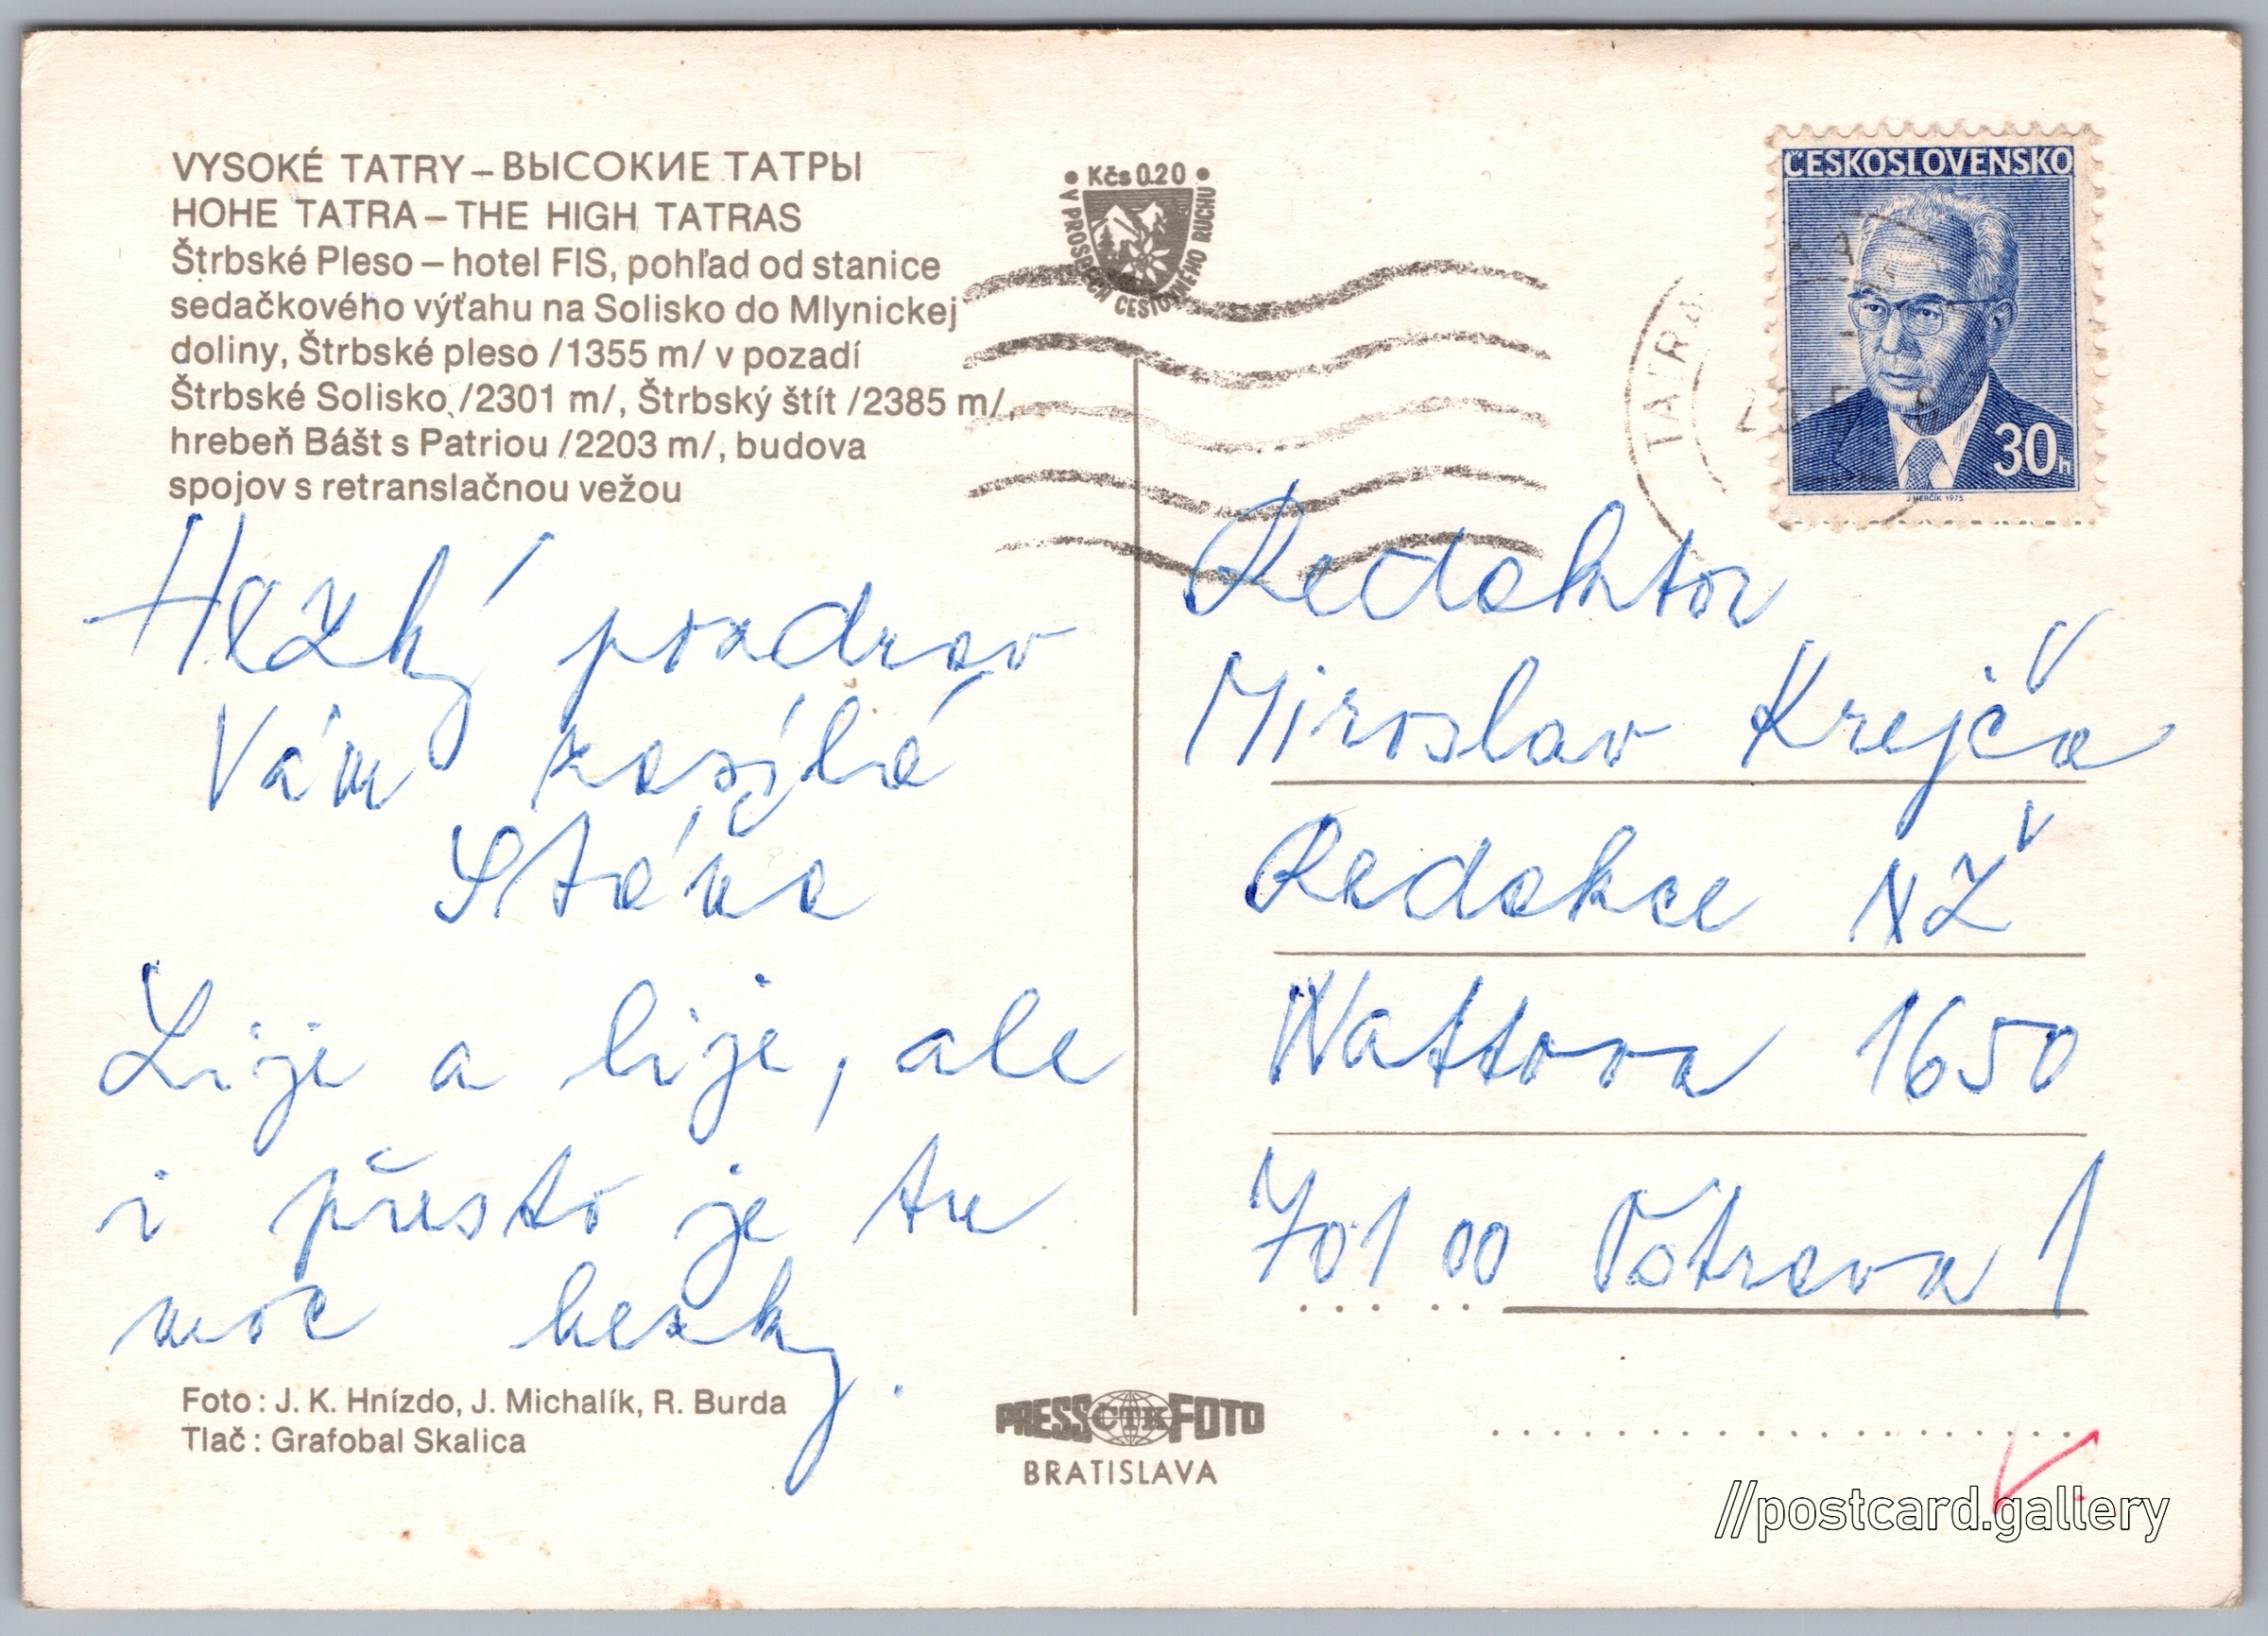 VYSOKÉ TATRY – ВЫСОКИЕ ТАТРЫ
HOHE TATRA – THE HIGH TATRAS
Štrbské Pleso – hotel FIS, pohľad od stanice
sedačkového výťahu na Solisko do Mlynickej
doliny, Štrbské pleso /1355 m/ v pozadí
Štrbské Solisko /2301 m/, Štrbský štít /2385 m/,
hrebeň Bášt s Patriou /2203 m/, budova
spojov s retranslačnou vežou
Hezký pozdrav
Vám posílá
Lije a lije, ale
i přesto je tu
moc hezky.
Foto: J. K. Hnízdo, J. Michalík, R. Burda
Tlač: Grafobal Skalica
• Kčs 0.20 •
V PROSPECH CESTOVNÉHO RUCHU
PRESS ČTK FOTO
BRATISLAVA
TATRA
ČESKOSLOVENSKO
30h
J. HERČÍK 1975
Redaktor
Miroslav Krejča
Redakce NŽ
Wattova 1650
701 00 Ostrava 1
//postcard.gallery